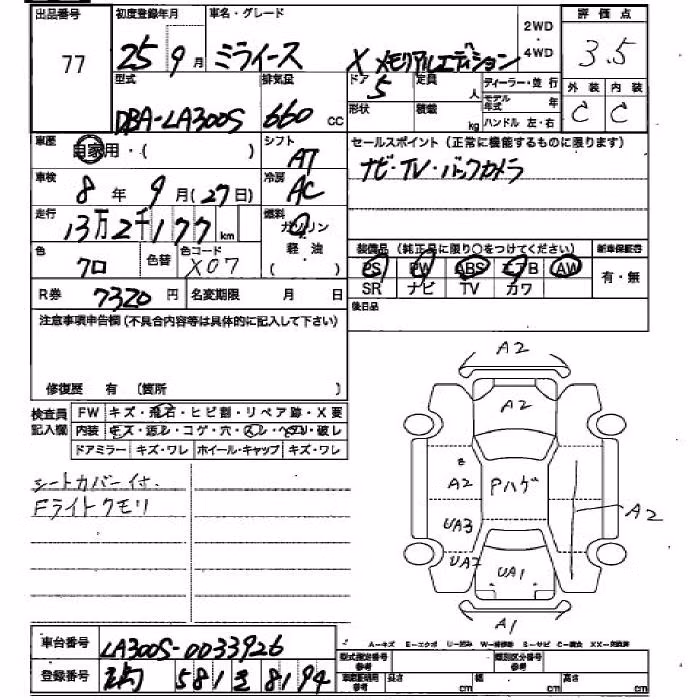 出品番号 初度登録年月 車名・グレード 2WD・4WD 評価点
77 25 9月 ミライース X メモリアルエディション 3.5
型式 排気量 ドア 5 定員 人 ディーラー・並行 外装 内装
DBA-LA300S 660 cc 形状 積載 kg モデル年式 年 C C
ハンドル 左・右
車歴 自家用・( ) シフト AT セールスポイント(正常に機能するものに限ります)
車検 8年 9月(27日) 冷房 AC ナビ・TV・バックカメラ
走行 13万2千177km 燃料 ガソリン
軽油
( )
色 クロ 色替 色コード X07 装備品(純正品に限り○をつけてください) 新車保証書
PS PW ABS エアB AW 有・無
SR ナビ TV カワ
R券 7320円 名変期限 月 日 後日品
注意事項申告欄(不具合内容等は具体的に記入して下さい)
修復歴 有 (箇所 )
検査員記入欄 FW キズ・飛石・ヒビ割・リペア跡・X要
内装 キズ・汚レ・コゲ・穴・スレ・ヘタリ・破レ
ドアミラー キズ・ワレ ホイール・キャップ キズ・ワレ
シートカバー付
Fライトクモリ
A2
A2
A2 Pハゲ
A2
UA3
UA2 UA1
A1
A―キズ E―エクボ
車台番号 LA300S-0033926
型式指定番号 参考 類別区分番号 参考
登録番号 581 き 8194
車庫証明用 参考 長さ cm 幅 cm 高さ cm